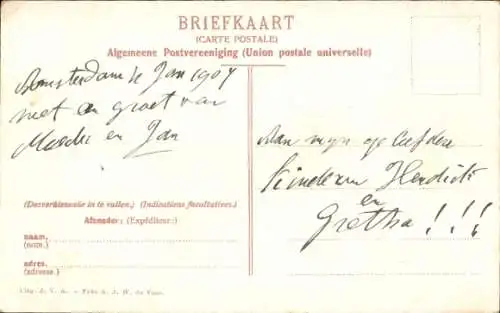 BRIEFKAART
(CARTE POSTALE)
Algemeene Postvereeniging (Union postale universelle)
Amsterdam Jan 1907
met een groet van
Moeder en Jan
Aan mijn geliefde
kinderen Hendrik
en
Gretha!!!
(Desverkiezende in te vullen.) (Indications facultatives.)
Afzender: (Expéditeur:)
naam.
(nom.)
adres.
(adresse.)